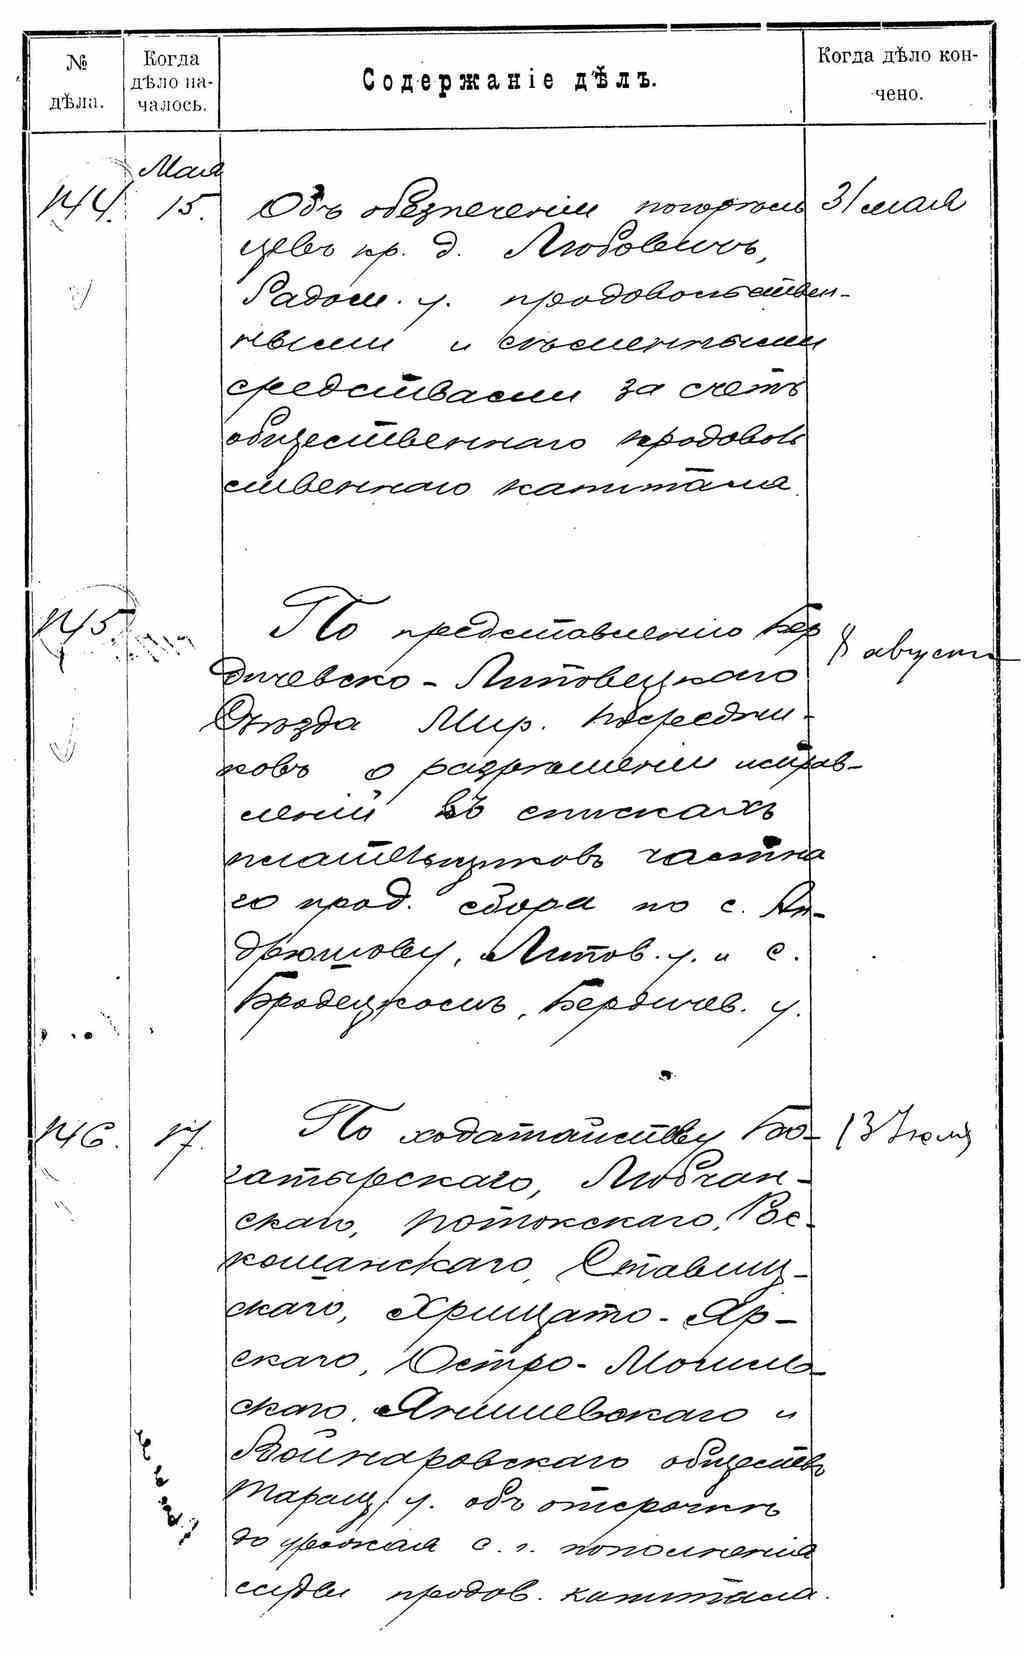 № дѣла.
Когда дѣло на-
чалось.
Содержаніе дѣлъ.
Когда дѣло кон-
чено.
Мая
144. 15. Объ обезпеченіи погорѣль 31 мая
цевъ кр. д. Любовичъ,
Радом. у. продовольствен-
ными и сѣменными
средствами за счетъ
общественнаго продоволь
ственнаго капитала.
145 По представленію Бер 8 августа
дичевско-Липовецкаго
Съѣзда Мир. Посредни-
ковъ о разрѣшеніи исправ-
леній въ спискахъ
плательщиковъ частна
го прод. сбора по с. Ан-
дрюшову, Липов. у. и с.
Бродецкомъ, Бердичев. у.
146. 17. По ходатайству Бо- 13 Іюля
гатырскаго, Любчан-
скаго, Потокскаго, Рос-
кошанскаго, Ставищ-
скаго, Хрищато-Яр-
скаго, Остро-Могиль-
скаго, Янишевскаго и
Войнаровскаго обществъ
Таращ. у. объ отсрочкѣ
до урожая с. г. пополненія
ссуды продов. капитала.